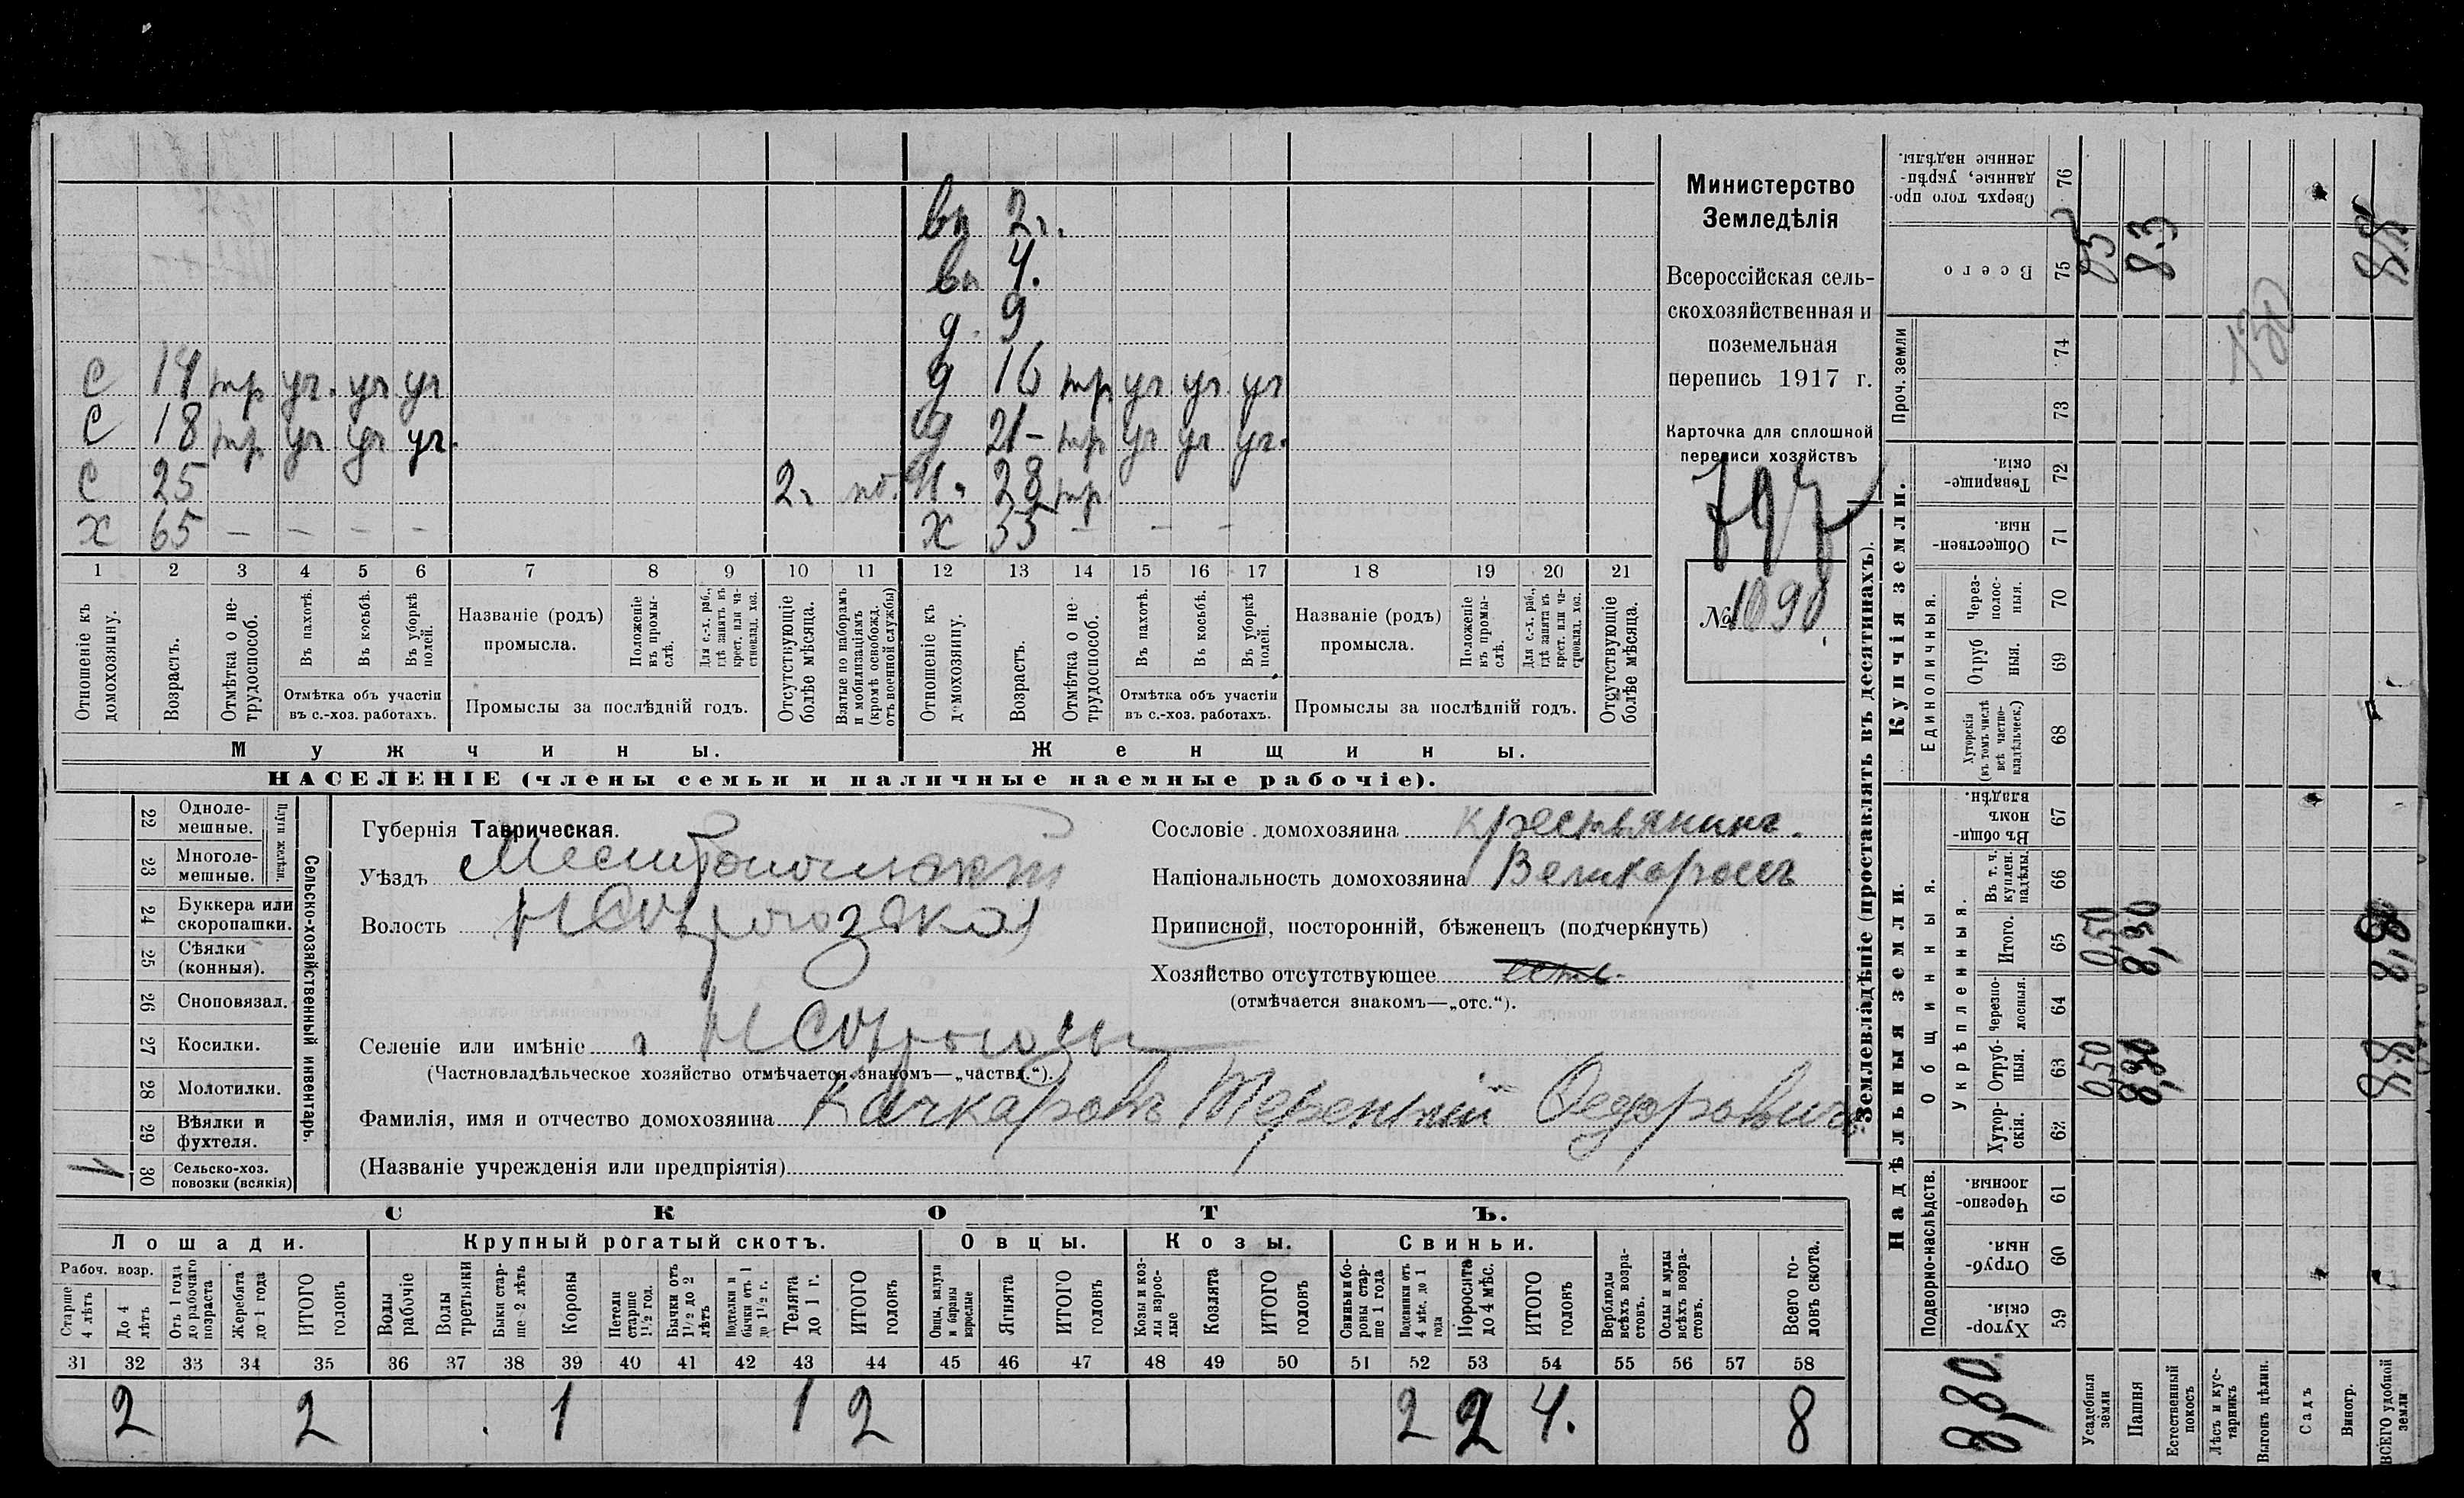 вн 2 г.
вн 4.
д. 9
с 14 тр уч. уч уч
д 16 тр уч уч. уч
с 18 тр уч уч уч.
д 21 - тр уч уч уч.
с 25 2.
н. 28 тр
х 65 - - - -
х 55 - - -
1 2 3 4 5 6 7 8 9 10 11 12 13 14 15 16 17 18 19 20 21
Отношеніе къ домохозяину.
Возрастъ.
Отмѣтка о не-трудоспособ.
Въ пахотѣ.
Въ косьбѣ.
Въ уборкѣ полей.
Отмѣтка объ участіи
въ с.-хоз. работахъ.
Названіе (родъ)
промысла.
Положеніе въ промы-слѣ.
Для с.-х. раб., гдѣ занятъ въ крест. или ча-стновлад. хоз.
Промыслы за послѣдній годъ.
Отсутствующіе болѣе мѣсяца.
Взятые по наборамъ и мобилизаціямъ (кромѣ освобожд. отъ военной службы)
Отношеніе къ домохозяину.
Возрастъ.
Отмѣтка о не трудоспособ.
Въ пахотѣ.
Въ косьбѣ.
Въ уборкѣ полей.
Отмѣтка объ участіи
въ с.-хоз. работахъ.
Названіе (родъ)
промысла.
Положеніе въ промы-слѣ.
Для с.-х. раб., гдѣ занята въ крест. или ча-стновлад. хоз.
Промыслы за послѣдній годъ.
Отсутствующіе болѣе мѣсяца.
Мужчины.
Женщины.
НАСЕЛЕНІЕ (члены семьи и наличные наемные рабочіе).
Министерство
Земледѣлія
Всероссійская сель-
скохозяйственная и
поземельная
перепись 1917 г.
Карточка для сплошной
переписи хозяйствъ
797
№ 1090
Сельско-хозяйственный инвентарь.
Плуги желѣзн.
22 Одноле-мешные.
23 Многоле-мешные.
24 Буккера или скоропашки.
25 Сѣялки (конныя).
26 Сноповязал.
27 Косилки.
28 Молотилки.
29 Вѣялки и фухтеля.
30 Сельско-хоз. повозки (всякія)
1
Губернія Таврическая.
Уѣздъ Мелитопольскій
Волость Н Сѣрогозская
Селеніе или имѣніе Н Сѣрогозы
(Частновладѣльческое хозяйство отмѣчается знакомъ—„частвл.“).
Фамилія, имя и отчество домохозяина Качкаровъ Терентій Федоровичъ
(Названіе учрежденія или предпріятія)
Сословіе домохозяина крестьянинъ.
Національность домохозяина Великороссъ
Приписной, посторонній, бѣженецъ (подчеркнуть)
Хозяйство отсутствующее
(отмѣчается знакомъ—„отс.“).
СКОТЪ.
Лошади.
Крупный рогатый скотъ.
Овцы.
Козы.
Свиньи.
Рабоч. возр.
Старше 4 лѣтъ
До 4 лѣтъ
Отъ 1 года до рабочаго возраста
Жеребята до 1 года
ИТОГО головъ
Волы рабочіе
Волы третьяки
Быки стар-ше 2 лѣтъ
Коровы
Петели старше 1½ год.
Бычки отъ 1½ до 2 лѣтъ
Подтелки и бычки отъ 1 до 1½ г.
Телята до 1 г.
ИТОГО головъ
Овцы, валухи и бараны взрослые
Ягнята
ИТОГО головъ
Козы и коз-лы взрос-лые
Козлята
ИТОГО головъ
Свиньи и бо-ровы стар-ше 1 года
Подсвинки отъ 4 мѣс. до 1 года
Поросята до 4 мѣс.
ИТОГО головъ
Верблюды всѣхъ возра-стовъ.
Ослы и мулы всѣхъ возра-стовъ.
Всего го-ловъ скота.
31 32 33 34 35 36 37 38 39 40 41 42 43 44 45 46 47 48 49 50 51 52 53 54 55 56 57 58
2 2 1 1 2 2 2 4. 8
Землевладѣніе (проставлять въ десятинахъ).
Надѣльныя земли.
Купчія земли.
Проч. земли
Подворно-наслѣдств.
Общинныя.
Укрѣпленныя.
Единоличныя.
59 Хутор-скія.
60 Отруб-ныя.
61 Черезпо-лосныя.
62 Хутор-скія.
63 Отруб-ныя.
64 Черезпо-лосныя.
65 Итого.
66 Въ т. ч. куплен. надѣлы.
67 Въ общин-номъ владѣн.
68 Хуторскія (въ томъ числѣ всѣ частно-владѣльческ.)
69 Отруб ныя.
70 Через-полос-ныя.
71 Обществен-ныя.
72 Товарище-скія.
73
74
75 Всего
76 Сверхъ того про-данные, укрѣп-ленные надѣлы.
8,80.
Усадебныя земли 0,50 0,50
Пашня 8,30 8,30 8.3
Естественный покосъ
Лѣсъ и кус-тарникъ
Выгонъ цѣлин.
Садъ
Виногр.
ВСЕГО удобной земли 8.8 8,8 8.8
130